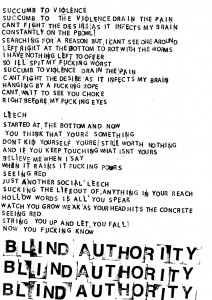 SUCCUMB TO VIOLENCE
SUCCUMB TO THE VIOLENCE DRAIN THE PAIN
CANT FIGHT THE DESIRE AS IT INFECTS MY BRAIN
CONSTANTLY ON THE PROWL
SEARCHING FOR A REASON BUT I CANT SEE ONE AROUND
LEFT RIGHT AT THE BOTTOM TO ROT WITH THE WORMS
I HAVE NOTHING LEFT TO OFFER
SO ILL SPIT MY FUCKING WORST
SUCCUMB TO VIOLENCE DRAIN THE PAIN
CANT FIGHT THE DESIRE AS IT INFECTS MY BRAIN
HANGING BY A FUCKING ROPE
CANT WAIT TO SEE YOU CHOKE
RIGHT BEFORE MY FUCKING EYES
LEECH
STARTED AT THE BOTTOM AND NOW
YOU THINK THAT YOURE SOMETHING
DONT KID YOURSELF YOURE STILL WORTH NOTHING
AND IF YOU KEEP TOUCHING WHAT ISNT YOURS
BELIEVE ME WHEN I SAY
WHEN IT RAINS IT FUCKING POURS
SEEING RED
JUST ANOTHER SOCIAL LEECH
SUCKING THE LIFE OUT OF ANYTHING IN YOUR REACH
HOLLOW WORDS IS ALL YOU SPEAK
WATCH YOU GROW WEAK AS YOUR HEAD HITS THE CONCRETE
SEEING RED
STRING YOU UP AND LET YOU FALL
NOW YOU FUCKING KNOW
BLIND AUTHORITY
BLIND AUTHORITY
BLIND AUTHORITY